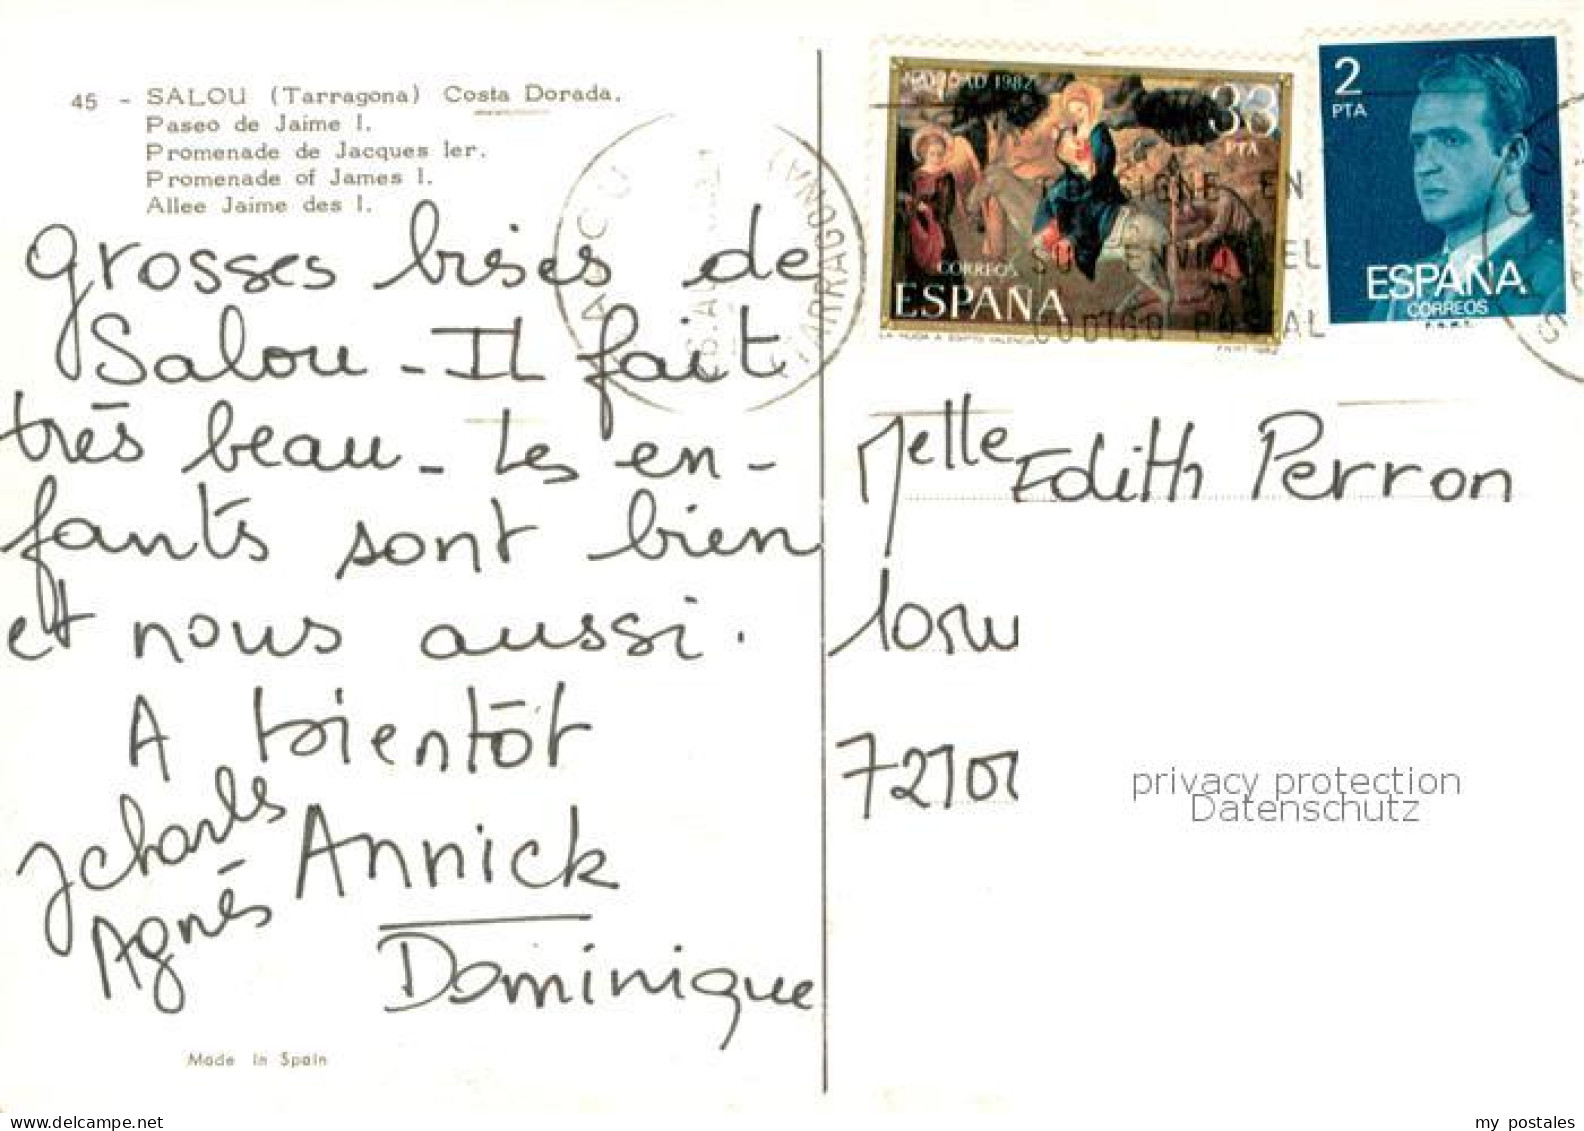 45 - SALOU (Tarragona) Costa Dorada.
Paseo de Jaime I.
Promenade de Jacques Ier.
Promenade of James I.
Allee Jaime des I.
grosses bises de
Salou - Il fait
très beau - Les en-
fants sont bien
et nous aussi.
A bientôt
Jcharles
Annick
Agnès
Dominique
Made in Spain
NAVIDAD 1982
33
PTA
CORREOS
ESPAÑA
LA HUIDA A EGIPTO VALENCIA
FNMT 1982
2
PTA
ESPAÑA
CORREOS
F.N.M.T.
SALOU
(TARRAGONA)
CONSIGNE EN
SUS ENVIOS EL
CODIGO POSTAL
Melle Edith Perron
privacy protection
Datenschutz
www.delcampe.net
my postales